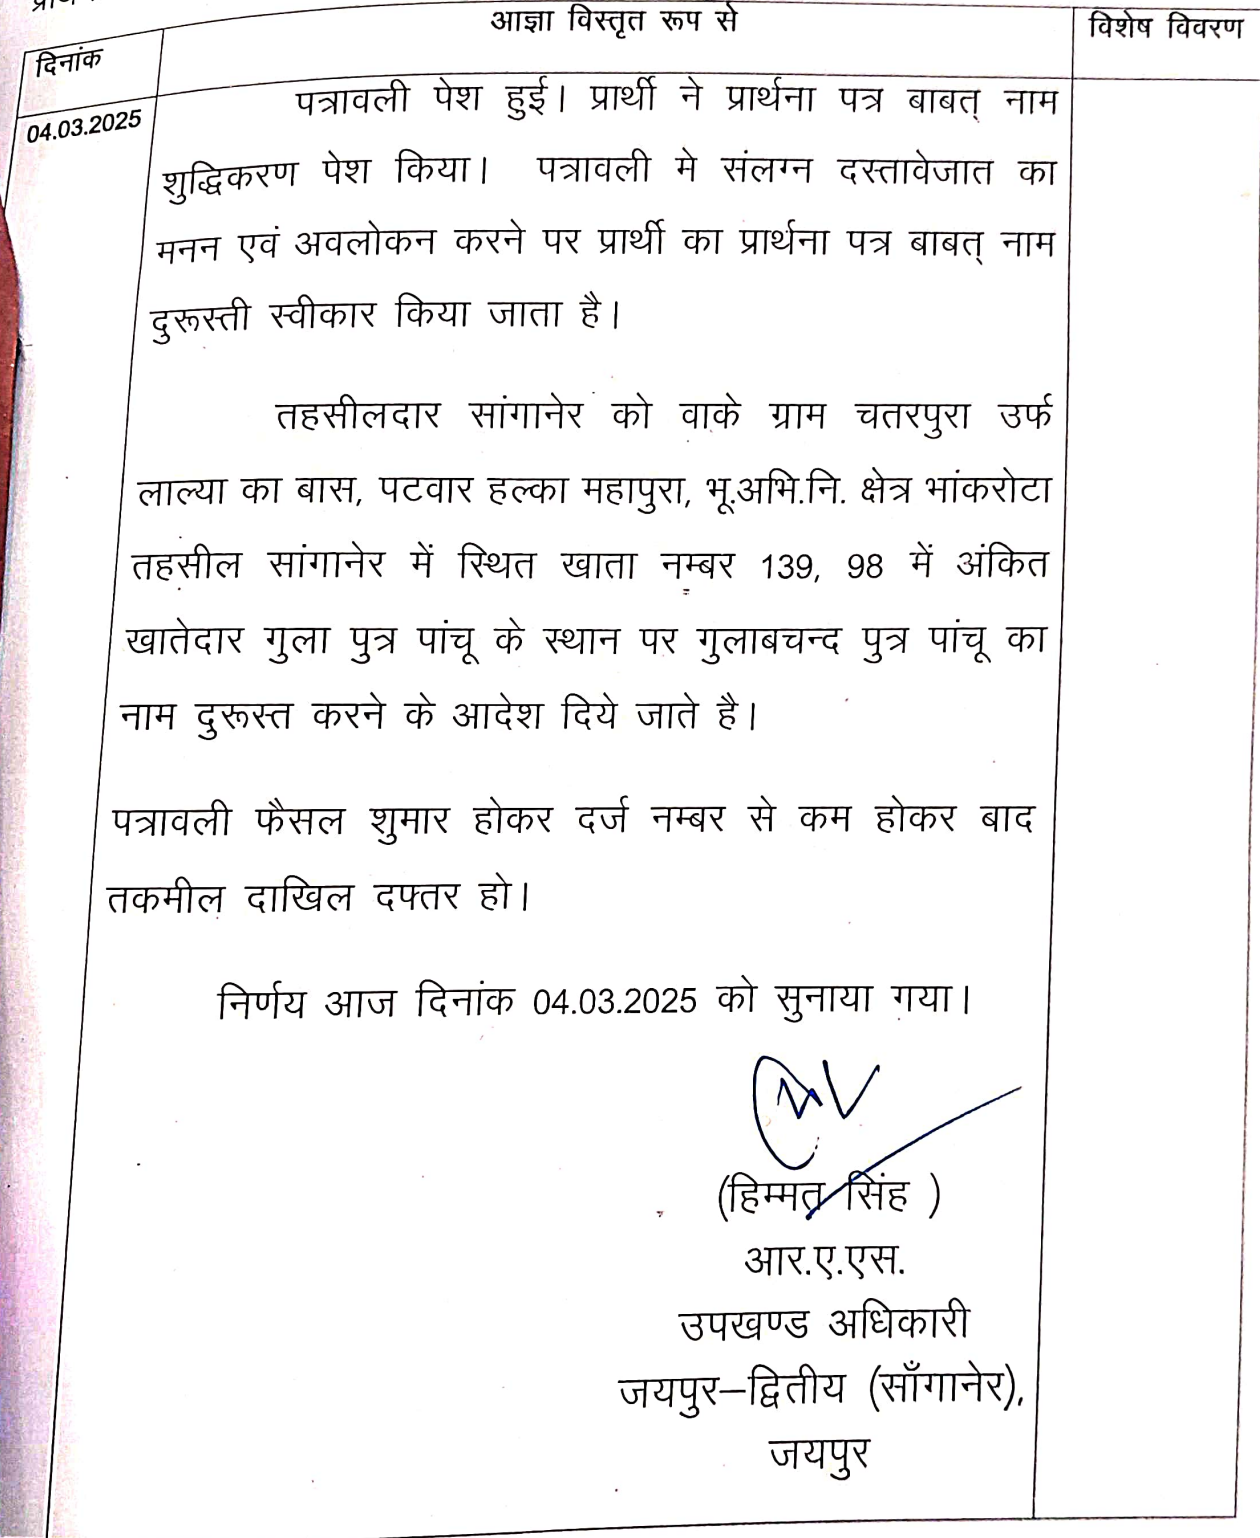 आज्ञा विस्तृत रूप से
विशेष विवरण
दिनांक
04.03.2025
पत्रावली पेश हुई। प्रार्थी ने प्रार्थना पत्र बाबत् नाम
शुद्धिकरण पेश किया। पत्रावली मे संलग्न दस्तावेजात का
मनन एवं अवलोकन करने पर प्रार्थी का प्रार्थना पत्र बाबत् नाम
दुरूस्ती स्वीकार किया जाता है।
तहसीलदार सांगानेर को वाके ग्राम चतरपुरा उर्फ
लाल्या का बास, पटवार हल्का महापुरा, भू.अभि.नि. क्षेत्र भांकरोटा
तहसील सांगानेर में स्थित खाता नम्बर 139, 98 में अंकित
खातेदार गुला पुत्र पांचू के स्थान पर गुलाबचन्द पुत्र पांचू का
नाम दुरूस्त करने के आदेश दिये जाते है।
पत्रावली फैसल शुमार होकर दर्ज नम्बर से कम होकर बाद
तकमील दाखिल दफ्तर हो।
निर्णय आज दिनांक 04.03.2025 को सुनाया गया।
(हिम्मत सिंह )
आर.ए.एस.
उपखण्ड अधिकारी
जयपुर–द्वितीय (साँगानेर),
जयपुर